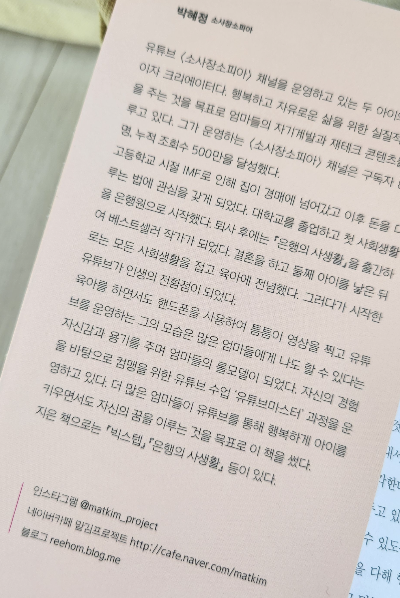 박혜정 소사장소피아
유튜브 〈소사장소피아〉 채널을 운영하고 있는 두 아이의
이자 크리에이터다. 행복하고 자유로운 삶을 위한 실질적
을 주는 것을 목표로 엄마들의 자기계발과 재테크 콘텐츠를
루고 있다. 그가 운영하는 〈소사장소피아〉 채널은 구독자
명, 누적 조회수 500만을 달성했다.
고등학교 시절 IMF로 인해 집이 경매에 넘어갔고 이후 돈을 다
루는 법에 관심을 갖게 되었다. 대학교를 졸업하고 첫 사회생활
을 은행원으로 시작했다. 퇴사 후에는 『은행의 사생활』을 출간하
여 베스트셀러 작가가 되었다. 결혼을 하고 둘째 아이를 낳은 뒤
로는 모든 사회생활을 접고 육아에 전념했다. 그러다가 시작한
유튜브가 인생의 전환점이 되었다.
육아를 하면서도 핸드폰을 사용하여 틈틈이 영상을 찍고 유튜
브를 운영하는 그의 모습은 많은 엄마들에게 나도 할 수 있다는
자신감과 용기를 주며 엄마들의 롤모델이 되었다. 자신의 경험
을 바탕으로 컴맹을 위한 유튜브 수업 '유튜브마스터' 과정을 운
영하고 있다. 더 많은 엄마들이 유튜브를 통해 행복하게 아이를
키우면서도 자신의 꿈을 이루는 것을 목표로 이 책을 썼다.
지은 책으로는 『빅스텝』, 『은행의 사생활』 등이 있다.
인스타그램 @matkim_project
네이버카페 맡김프로젝트 http://cafe.naver.com/matkim
블로그 reehom.blog.me